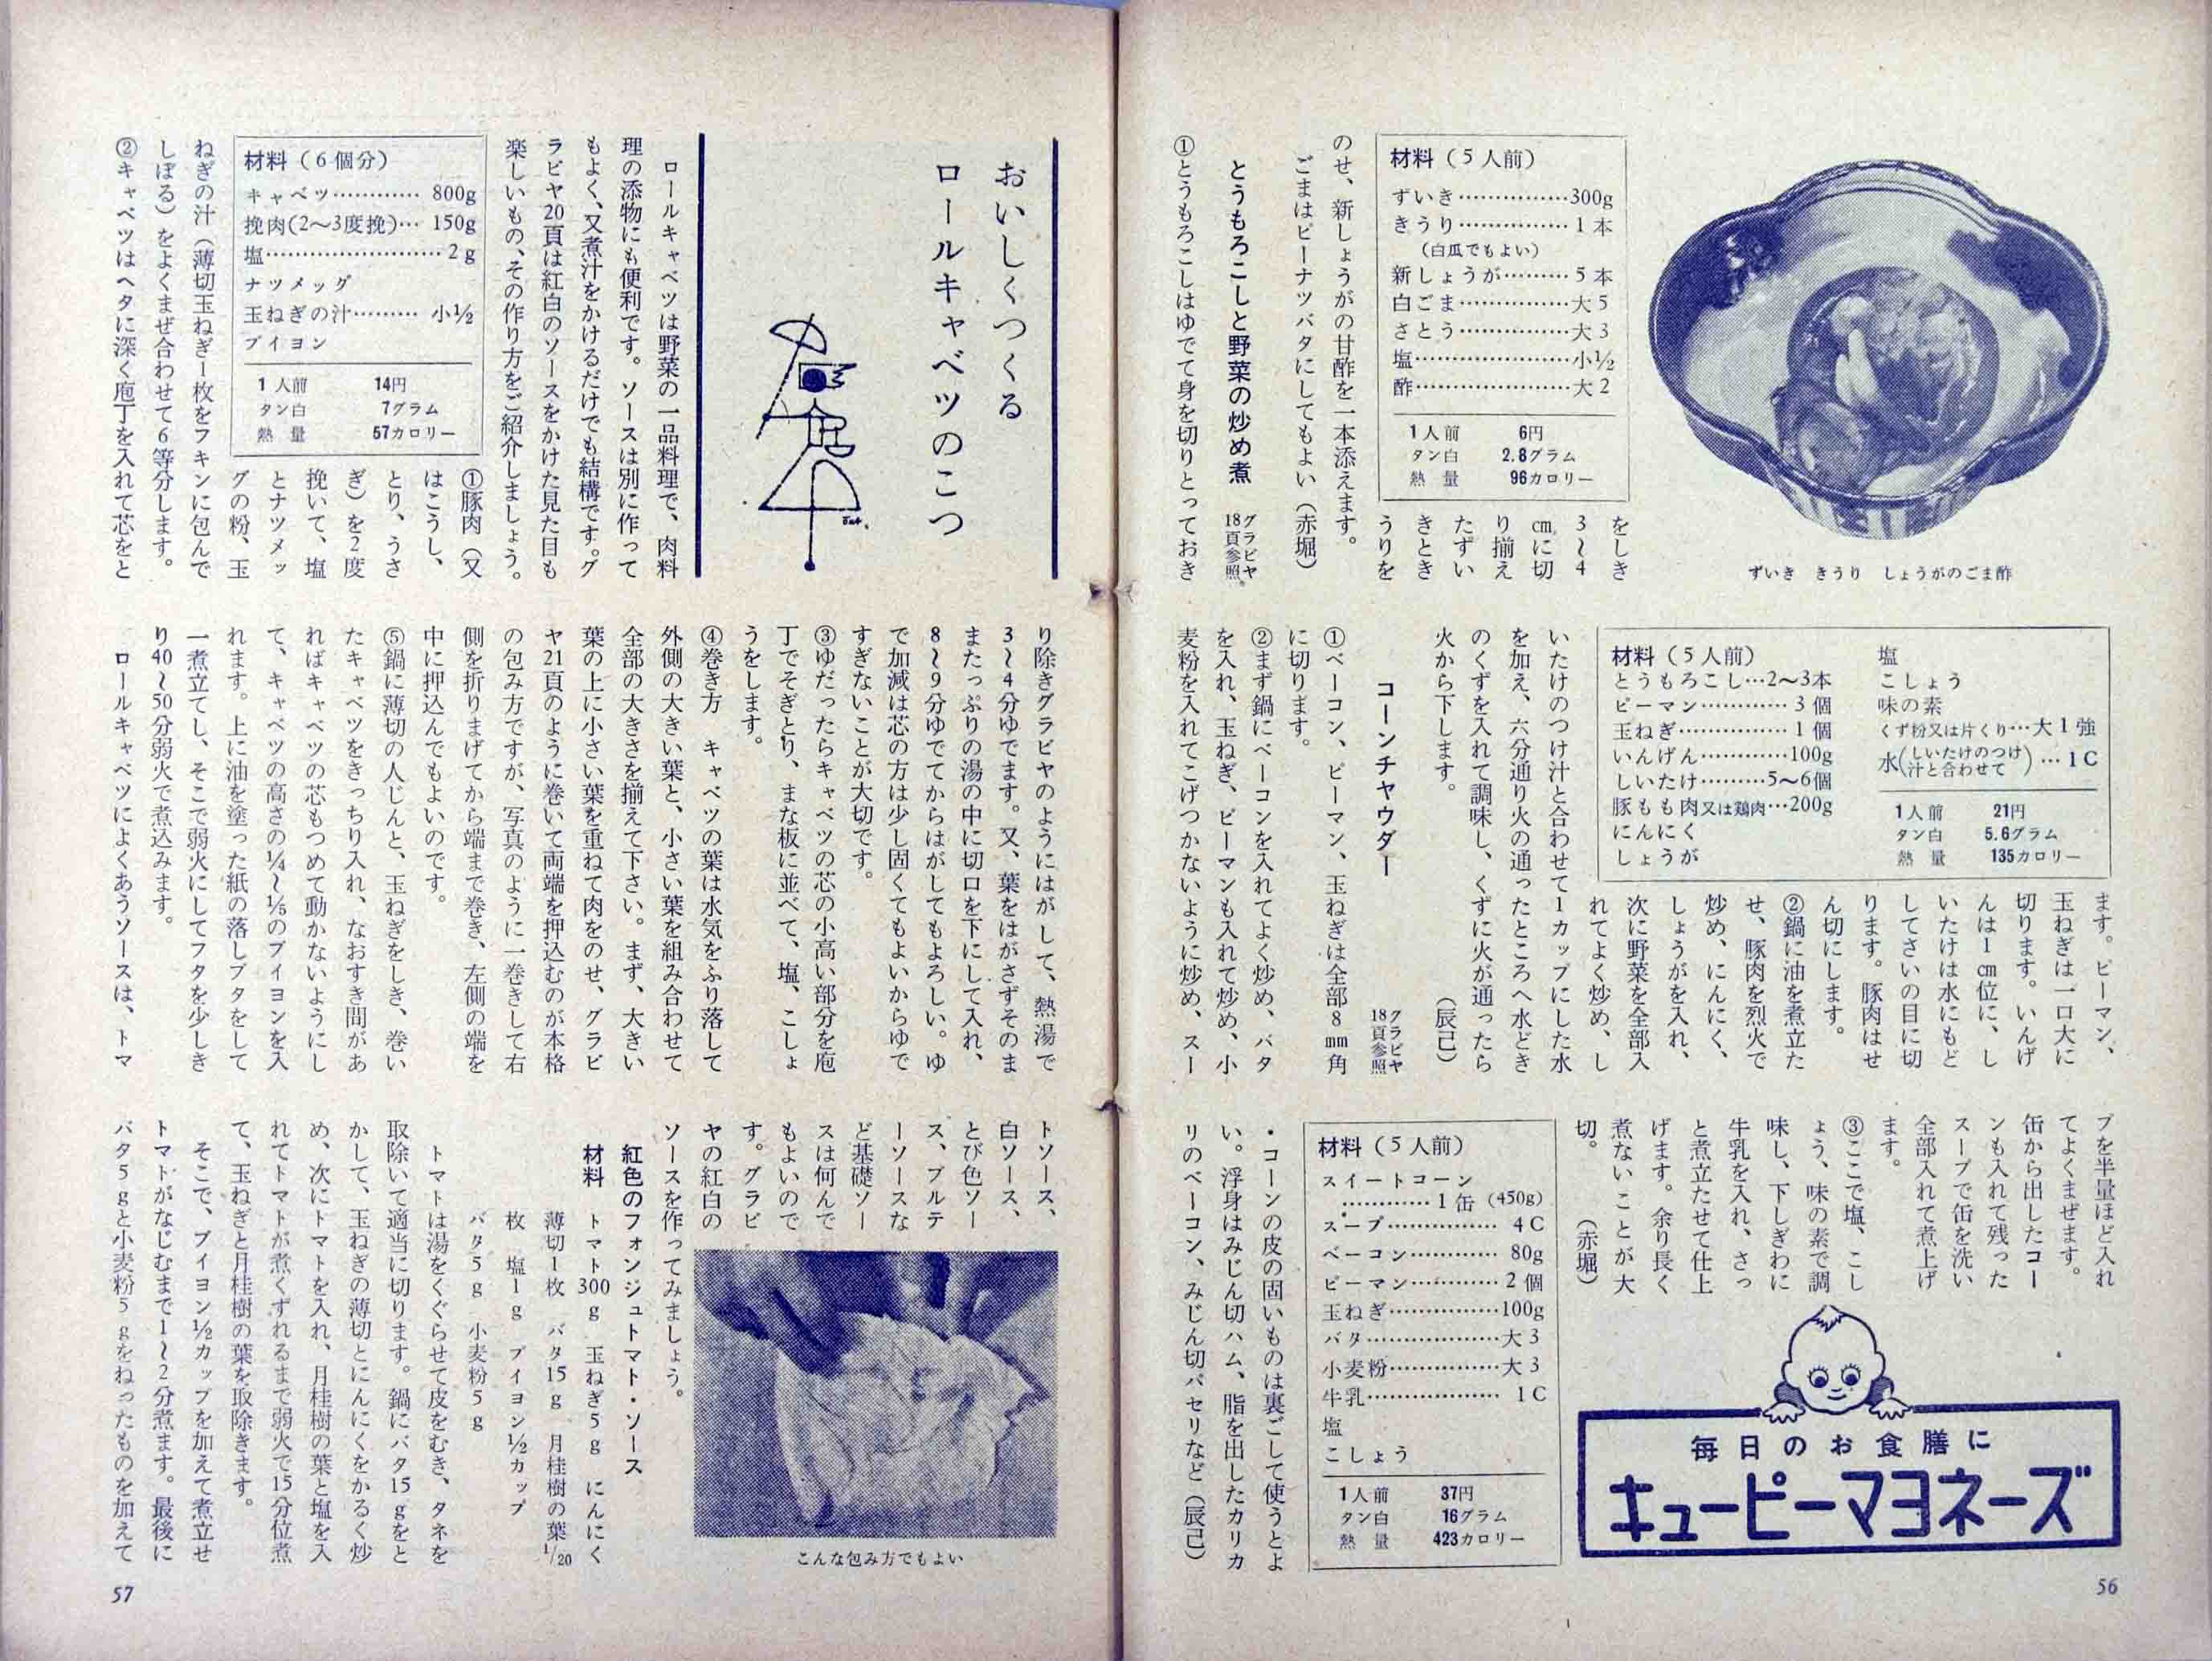 ずいき きうり しょうがのごま酢
材料（5人前）
ずいき……………300g
きうり……………1本
（白瓜でもよい）
新しょうが………5本
白ごま……………大5
さとう……………大3
塩…………………小½
酢…………………大2
1人前 6円
タン白 2.8グラム
熱量 96カロリー
をしき
3〜4
cmに切
り揃え
たずい
きとき
うりを
のせ、新しょうがの甘酢を一本添えます。
ごまはピーナツバタにしてもよい（赤堀）
とうもろこしと野菜の炒め煮
グラビヤ
18頁参照。
①とうもろこしはゆでて身を切りとっておき
材料（5人前）
とうもろこし…2〜3本
ピーマン…………3個
玉ねぎ……………1個
いんげん…………100g
しいたけ………5〜6個
豚もも肉又は鶏肉…200g
にんにく
しょうが
塩
こしょう
味の素
くず粉又は片くり…大1強
水（しいたけのつけ汁と合わせて）…1C
1人前 21円
タン白 5.6グラム
熱量 135カロリー
ます。ピーマン、
玉ねぎは一口大に
切ります。いんげ
んは1cm位に、し
いたけは水にもど
してさいの目に切
ります。豚肉はせ
ん切にします。
②鍋に油を煮立た
せ、豚肉を烈火で
炒め、にんにく、
しょうがを入れ、
次に野菜を全部入
れてよく炒め、し
いたけのつけ汁と合わせて1カップにした水
を加え、六分通り火の通ったところへ水どき
のくずを入れて調味し、くずに火が通ったら
火から下します。（辰己）
コーンチャウダー
グラビヤ
18頁参照
①ベーコン、ピーマン、玉ねぎは全部8mm角
に切ります。
②まず鍋にベーコンを入れてよく炒め、バタ
を入れ、玉ねぎ、ピーマンも入れて炒め、小
麦粉を入れてこげつかないように炒め、スー
プを半量ほど入れ
てよくまぜます。
缶から出したコー
ンも入れて残った
スープで缶を洗い
全部入れて煮上げ
ます。
③ここで塩、こし
ょう、味の素で調
味し、下しぎわに
牛乳を入れ、さっ
と煮立たせて仕上
げます。余り長く
煮ないことが大
切。（赤堀）
材料（5人前）
スイートコーン
…………1缶（450g）
スープ……………4C
ベーコン…………80g
ピーマン…………2個
玉ねぎ……………100g
バタ………………大3
小麦粉……………大3
牛乳………………1C
塩
こしょう
1人前 37円
タン白 16グラム
熱量 423カロリー
・コーンの皮の固いものは裏ごして使うとよ
い。浮身はみじん切ハム、脂を出したカリカ
リのベーコン、みじん切パセリなど（辰己）
毎日のお食膳に
キューピーマヨネーズ
56
おいしくつくる
ロールキャベツのこつ
ロールキャベツは野菜の一品料理で、肉料
理の添物にも便利です。ソースは別に作って
もよく、又煮汁をかけるだけでも結構です。グ
ラビヤ20頁は紅白のソースをかけた見た目も
楽しいもの、その作り方をご紹介しましょう。
材料（6個分）
キャベツ…………800g
挽肉(2〜3度挽)…150g
塩……………………2g
ナツメッグ
玉ねぎの汁………小½
ブイヨン
1人前 14円
タン白 7グラム
熱量 57カロリー
①豚肉（又
はこうし、
とり、うさ
ぎ）を2度
挽いて、塩
とナツメッ
グの粉、玉
ねぎの汁（薄切玉ねぎ1枚をフキンに包んで
しぼる）をよくまぜ合わせて6等分します。
②キャベツはヘタに深く庖丁を入れて芯をと
り除きグラビヤのようにはがして、熱湯で
3〜4分ゆでます。又、葉をはがさずそのま
またっぷりの湯の中に切口を下にして入れ、
8〜9分ゆでてからはがしてもよろしい。ゆ
で加減は芯の方は少し固くてもよいからゆで
すぎないことが大切です。
③ゆだったらキャベツの芯の小高い部分を庖
丁でそぎとり、まな板に並べて、塩、こしょ
うをします。
④巻き方 キャベツの葉は水気をふり落して
外側の大きい葉と、小さい葉を組み合わせて
全部の大きさを揃えて下さい。まず、大きい
葉の上に小さい葉を重ねて肉をのせ、グラビ
ヤ21頁のように巻いて両端を押込むのが本格
の包み方ですが、写真のように一巻きして右
側を折りまげてから端まで巻き、左側の端を
中に押込んでもよいのです。
⑤鍋に薄切の人じんと、玉ねぎをしき、巻い
たキャベツをきっちり入れ、なおすき間があ
ればキャベツの芯もつめて動かないようにし
て、キャベツの高さの¼〜⅕のブイヨンを入
れます。上に油を塗った紙の落しブタをして
一煮立てし、そこで弱火にしてフタを少しき
り40〜50分弱火で煮込みます。
ロールキャベツによくあうソースは、トマ
トソース、
白ソース、
とび色ソー
ス、ブルテ
ーソースな
ど基礎ソー
スは何んで
もよいので
す。グラビ
ヤの紅白の
ソースを作ってみましょう。
こんな包み方でもよい
紅色のフォンジュトマト・ソース
材料 トマト300g 玉ねぎ5g にんにく
薄切1枚 バタ15g 月桂樹の葉1/20
枚 塩1g ブイヨン½カップ
バタ5g 小麦粉5g
トマトは湯をくぐらせて皮をむき、タネを
取除いて適当に切ります。鍋にバタ15gをと
かして、玉ねぎの薄切とにんにくをかるく炒
め、次にトマトを入れ、月桂樹の葉と塩を入
れてトマトが煮くずれるまで弱火で15分位煮
て、玉ねぎと月桂樹の葉を取除きます。
そこで、ブイヨン½カップを加えて煮立せ
トマトがなじむまで1〜2分煮ます。最後に
バタ5gと小麦粉5gをねったものを加えて
57